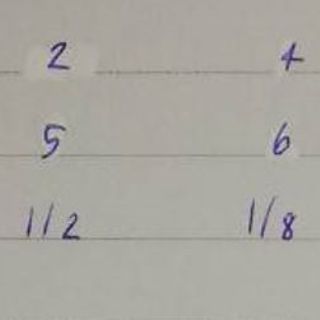 2 4
5 6
1/2 1/8